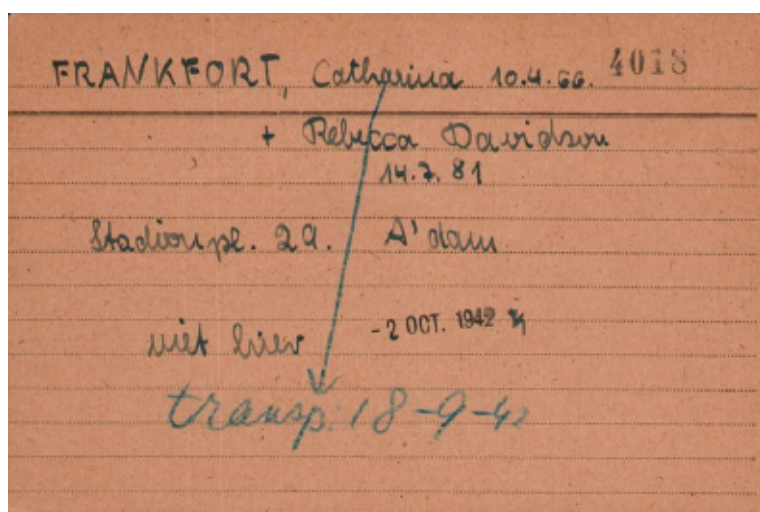 FRANKFORT, Catharina 10.4.66. 4018
+ Rebecca Davidson
14.7.81
Stadionpl. 29. A'dam
niet hier - 2 OCT. 1942
transp. 18-9-42